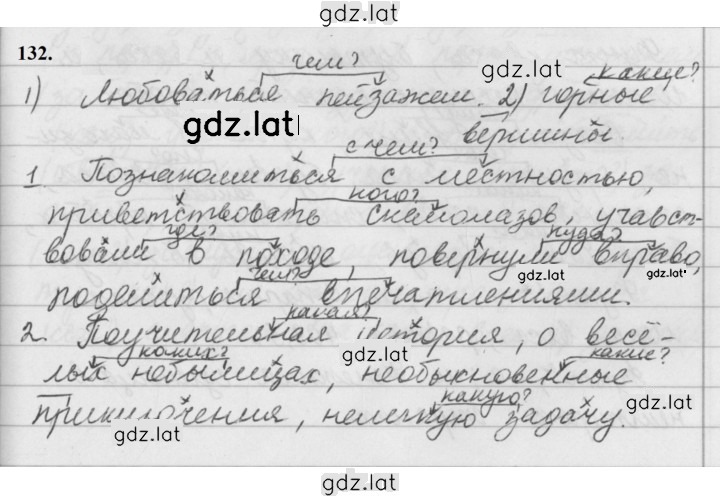 gdz.lat
132.
чем? какие?
gdz.lat
1) Любоваться пейзажем. 2) горные
gdz.lat
вершины
с чем?
1 Познакомиться с местностью,
кого?
приветствовать скалолазов, учавст-
где? куда?
вовали в походе, повернули вправо,
gdz.lat gdz.lat
чем?
поделиться впечатлениями.
какая?
2. Поучительная история, о весё-
gdz.lat
каких? какие?
лых небылицах, необыкновенные
какую?
приключения, нелегкую задачу.
gdz.lat gdz.lat
gdz.lat